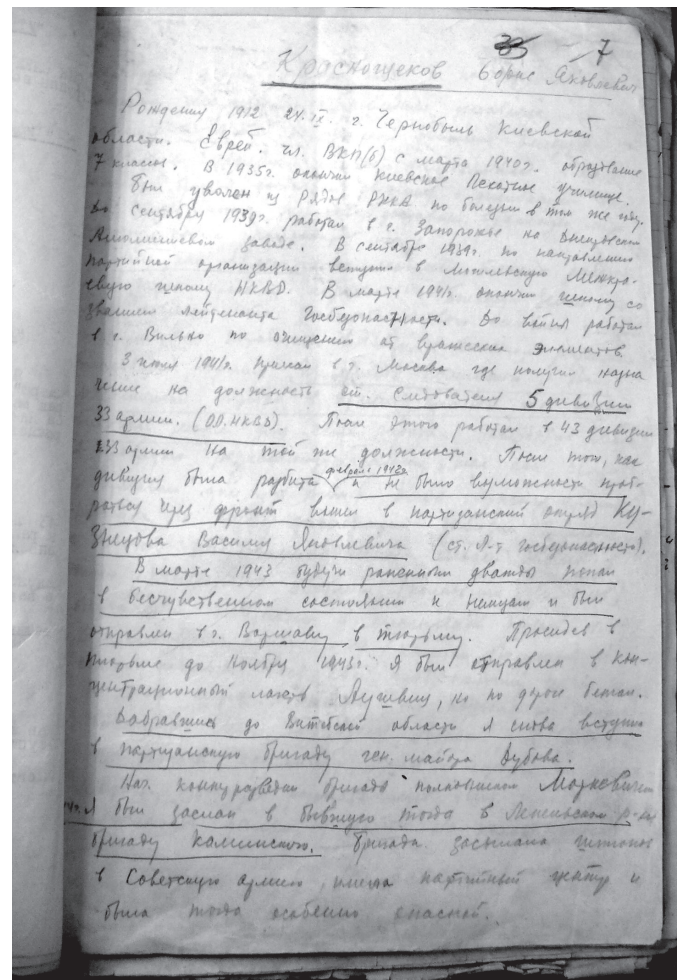 33 7
Краснощеков Борис Яковлевич
Рождения 1912 24.IV. г. Чернобыль Киевской
области. Еврей. чл. ВКП(б) с марта 1940г. образование
7 классов. В 1935г. окончил Киевское Пехотное училище.
Был уволен из Рядов РККА по болезни в том же году.
До сентября 1939г. работал в г. Запорожье на Днепровском
Алюминиевом заводе. В сентябре 1939г. по направлению
партийной организации вступил в Могилевскую Межкра-
евую школу НКВД. В марте 1941г. окончил школу со
званием лейтенанта Госбезопасности. До войны работал
в г. Вильно по очищению от вражеских элементов.
3 июля 1941г. приехал в г. Москва где получил назна
чение на должность ст. следователя 5 дивизии
33 армии. (О.О. НКВД). После этого работал в 43 дивизии
33 армии на той же должности. После того, как
дивизия была разбита февраль 1942г. и не было возможности проб-
раться через фронт вошел в партизанский отряд Ку-
знецова Василия Яковлевича (ст. л-т госбезопасности).
В марте 1943 будучи раненным дважды попал
в бесчувственном состоянии к немцам и был
отправлен в г. Варшаву в тюрьму. Просидев в
тюрьме до ноября 1943г. Я был отправлен в кон-
центрационный лагерь Аушевиц, но по дороге бежал.
Добравшись до Витебской области я снова вступил
в партизанскую бригаду ген. майора Дубова.
Нач. контрразведки бригады полковником Маркевичем
я был заслан в бывшую тогда в Лепельском р-не
бригаду Каминского. Бригада засылала шпионов
в Советскую армию, имела партийный центр и
была тогда особенно опасной.